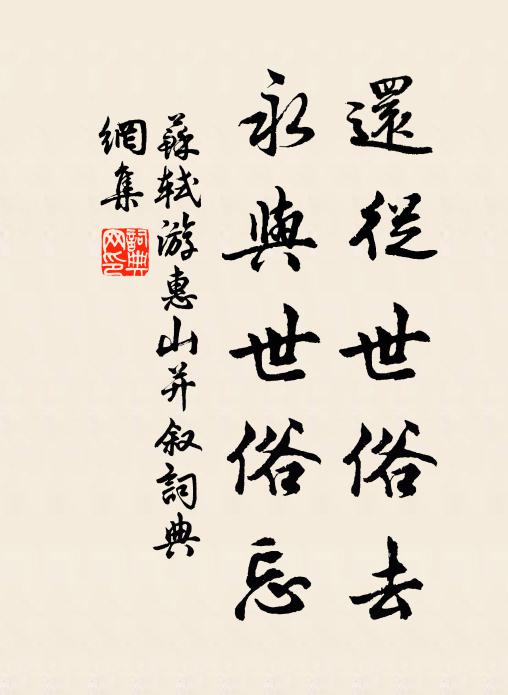 還從世俗去
永與世俗忘
蘇軾游惠山并叙詞典
網集
詞典
网印